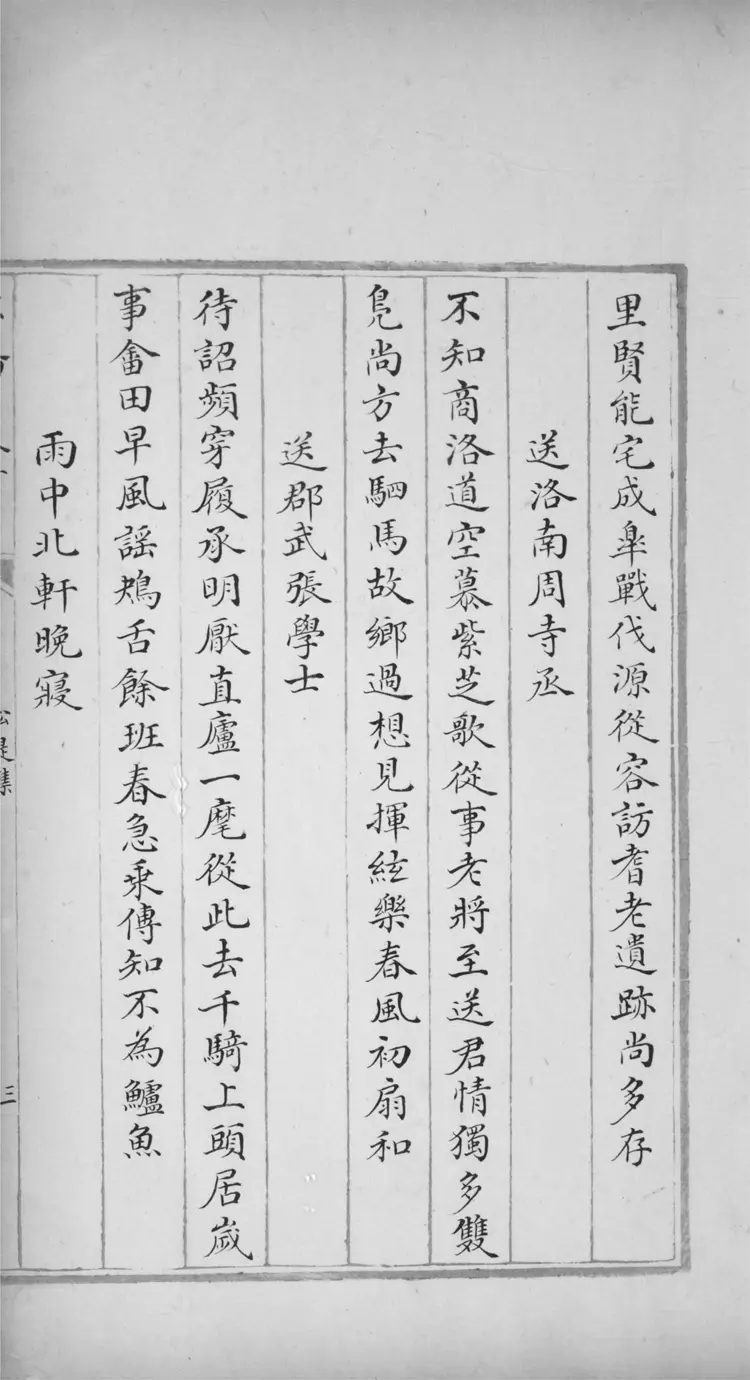 里賢能宅成皐戰伐源從容訪耆老遺跡尚多存
送洛南周寺丞
不知商洛道空慕紫芝歌從事老將至送君情獨多雙
鳧尚方去駟馬故鄉過想見揮絃樂春風初扇和
送郡武張學士
待詔頻穿履承明厭直廬一麾從此去千騎上頭居歲
事畬田早風謠鴂舌餘班春急乘傳知不為鱸魚
雨中北軒晚寢
公是集
三